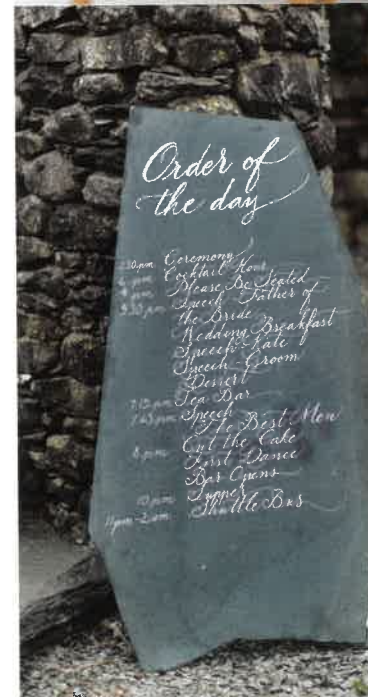 Order of
the day
2.30pm Ceremony
Cocktail Hour
Please Be Seated
Speech - Father of
the Bride
Wedding Breakfast
Speech - Kate
Speech - Groom
Dessert
7.15pm Tea Bar
7.45pm Speech
- The Best Men
8pm Cut the Cake
First Dance
Bar Opens
10pm Supper
11pm - 2am Shuttle Bus